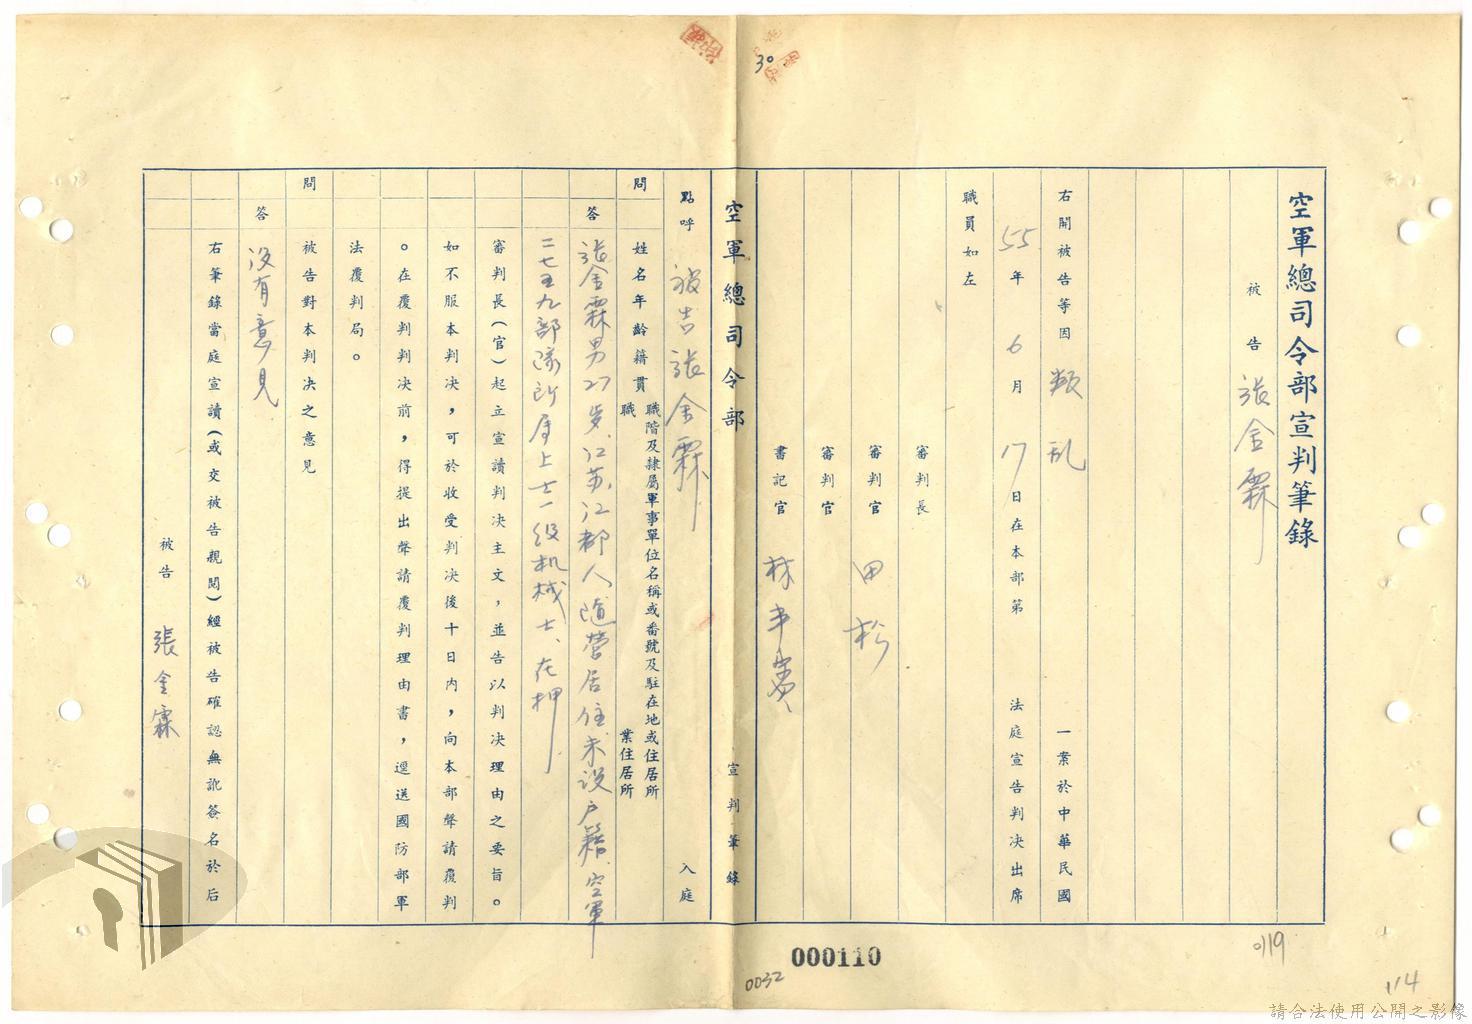 空軍總司令部宣判筆錄
被告 張金霖
右開被告等因 叛乱 一案於中華民國
55年 6月 17日在本部第 法庭宣告判决出席
職員如左
審判長
審判官 田松
審判官
書記官 林
空軍總司令部 宣判筆錄
點呼 被告張金霖 入庭
問 姓名年齡籍貫職階及隸屬軍事單位名稱或番號及駐在地或住居所
職 業住居所
答 張金霖男27岁、江苏江都人随营居住未設户籍、空軍
二七五九部隊所屬上士一级机械士、在押
審判長(官)起立宣讀判决主文,並告以判决理由之要旨。
如不服本判决,可於收受判决後十日內,向本部聲請覆判
。在覆判判决前,得提出聲請覆判理由書,逕送國防部軍
法覆判局。
問 被告對本判决之意見
答 沒有意見
右筆錄當庭宣讀(或交被告親閱)經被告確認無訛簽名於后
被告 張金霖
30
000110
0032
0119
114
請合法使用公開之影像